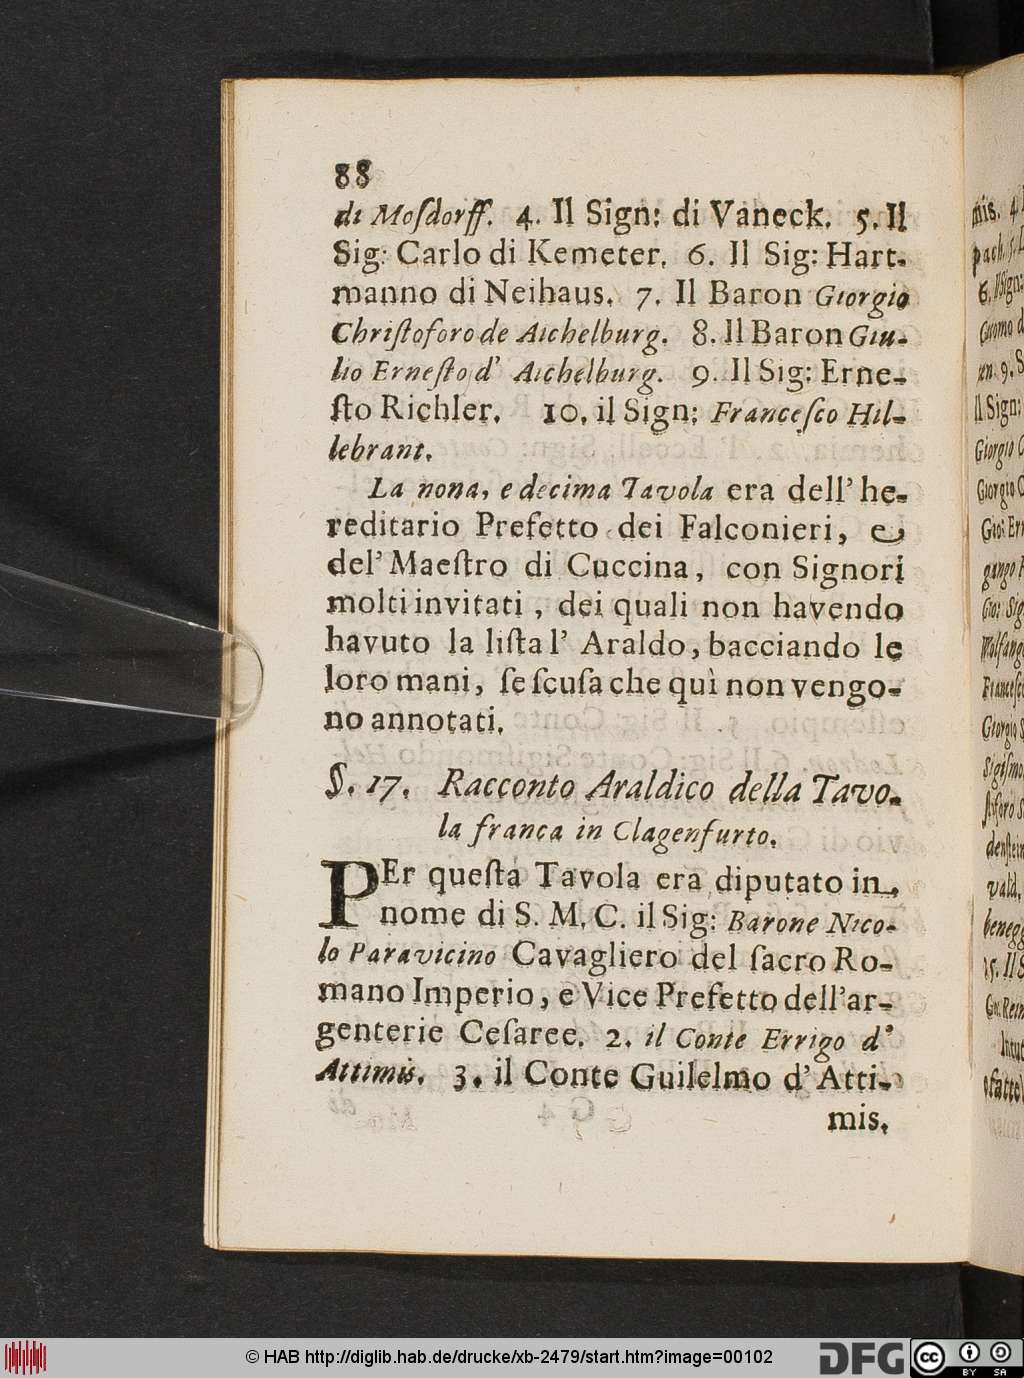 88
di Moſdorff. 4. Il Sign: di Vaneck. 5. Il
Sig: Carlo di Kemeter. 6. Il Sig: Hart-
manno di Neihaus. 7. Il Baron Giorgio
Chriſtoforo de Aichelburg. 8. Il Baron Giu-
lio Erneſto d' Aichelburg. 9. Il Sig: Erne-
ſto Richler. 10. il Sign: Franceſco Hil-
lebrant.
La nona, e decima Tavola era dell' he-
reditario Prefetto dei Falconieri, e
del' Maeſtro di Cuccina, con Signori
molti invitati, dei quali non havendo
havuto la liſta l' Araldo, bacciando le
loro mani, ſe ſcuſa che quì non vengo-
no annotati.
§. 17. Racconto Araldico della Tavo-
la franca in Clagenfurto.
PEr queſta Tavola era diputato in
nome di S. M. C. il Sig: Barone Nico-
lo Paravicino Cavagliero del ſacro Ro-
mano Imperio, e Vice Prefetto dell'ar-
genterie Ceſaree. 2. il Conte Errigo d'
Attimis. 3. il Conte Guilelmo d' Atti-
mis.
mis. 4.
pach. 5.
6. Il Sign:
Giacomo d
9. S
Il Sign:
Giorgio C
Giorgio C
Gio: Err
gango
Gio: Sig
Wolfang
Franceſc
Giorgio S
Sigiſmo
ſtoforo S
denſtein
vald.
benegg
15. Il S
© HAB http://diglib.hab.de/drucke/xb-2479/start.htm?image=00102
DFG
cc
BY SA